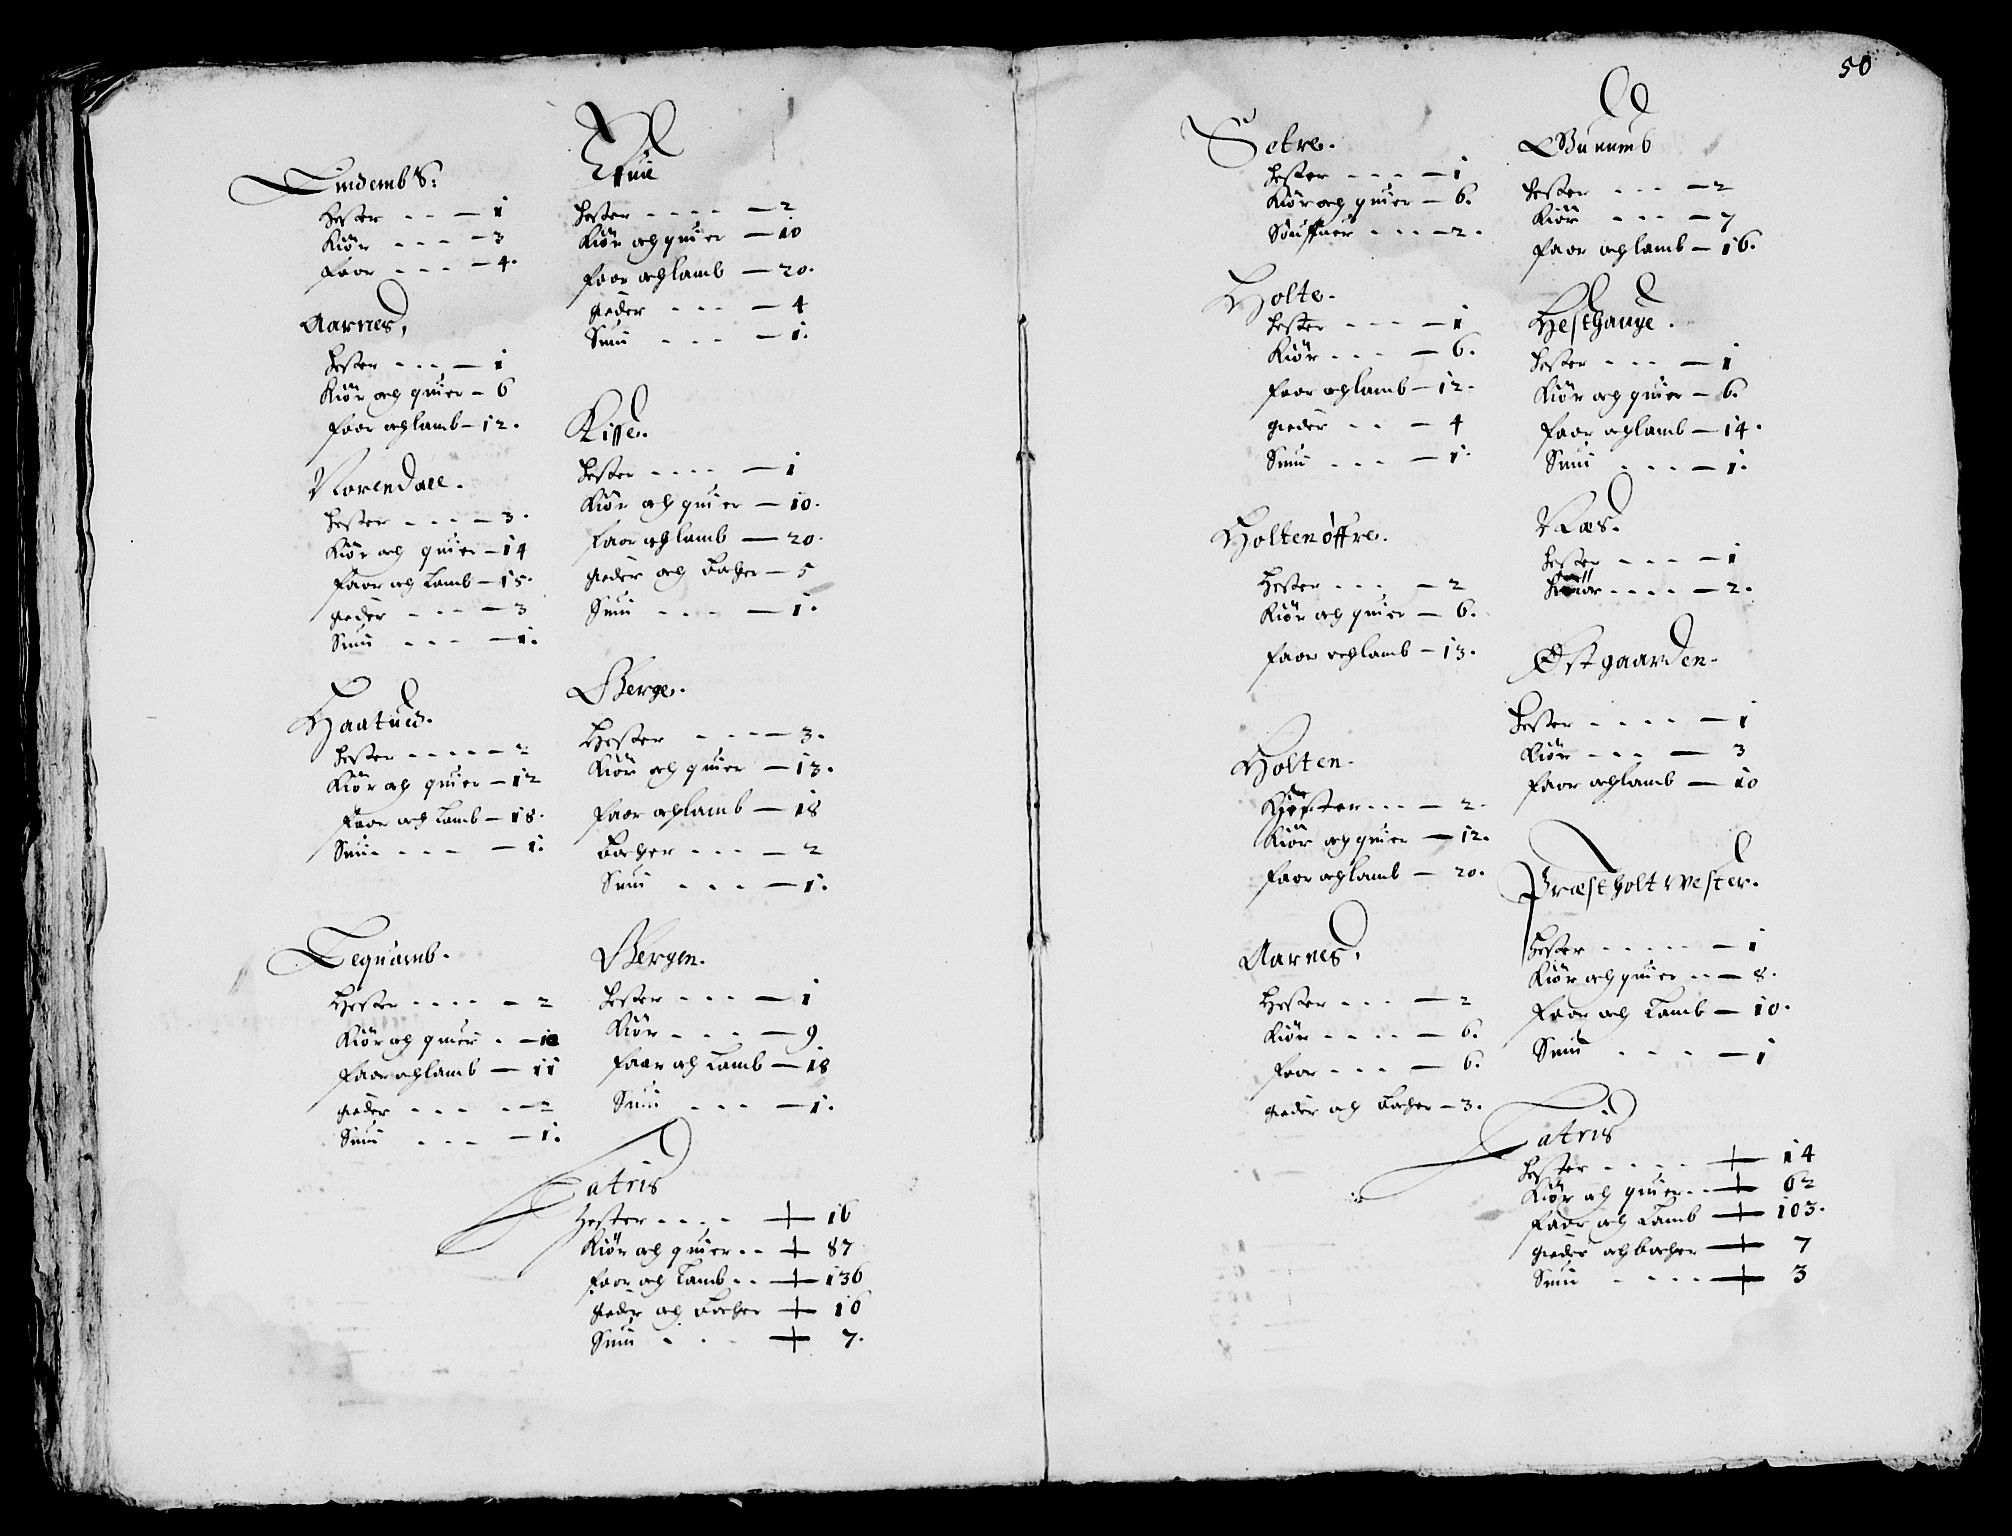 Hester - - - 1
Kiör - - - 3
Faar - - - 4.
Aarnes,
Hester - - - 1
Kiör och quier - 6
Faar och lamb - 12.
Norendall.
Hester - - - 3.
Kiör och quier - 14
Faar och Lamb - 15.
Geder - - - 3
Suin - - - 1.
Haatued.
Hester - - - - 2
Kiör och quier - 12
Faar och Lamb - 18.
Suin - - - 1.
Tequamb.
Hester - - - - 2
Kiör och quier - -
Faar och lamb - 11
Geder - - - - 2
Suin - - - 1.
Hester - - - - 2
Kiör och quier - 10
Faar och lamb - 20.
Geder - - - 4
Suin - - - 1.
Kisse.
Hester - - - - 1
Kiör och quier - 10.
Faar och lamb - 20.
Geder och Bocher - 5
Suin - - - 1.
Berge.
Hester - - - 3.
Kiör och quier - 13.
Faar och lamb - 18
Bocher - - - 2
Suin - - - 1.
Bergen.
Hester - - - 1
Kiör - - - 9
Faar och Lamb - 18
Suin - - - 1.
Latris
Hester - - - - 16
Kiör och quier - - 87
Faar och Lamb - - 136
Geder och Bocher 16
Suin - - - 7.
50
Setre.
Hester - - - 1
Kiör och quier - 6.
Souffuer - - - 2.
Holte.
Hester - - - 1
Kiör - - - 6.
Faar och lamb - 12.
Geder - - - 4
Suin - - - 1.
Holtenøffre.
Hester - - - 2
Kiör och quier - 6.
Faar och lamb - 13.
Holten.
Hester - - - 2.
Kiör och quier - 12.
Faar och lamb - 20.
Aarnes,
Hester - - - 2
Kiör - - - - 6.
Faar - - - 6.
Geder och Bocher - 3.
Hester - - - 2
Kiör - - - 7
Faar och lamb - 16.
Hesthauge.
Hester - - - 1
Kiör och quier - 6.
Faar och lamb - 14.
Suin - - - 1.
Næs.
Hester - - - 1
- - - - 2.
Østgaarden.
Hester - - - - 1
Kiör - - - 3
Faar och lamb - 10
Præstholt wester.
Hester - - - - - 1
Kiör och quier - - 8.
Faar och Lamb - 10.
Suin - - - 1
Latris
Hester - - - - 14
Kiör och quier - - 62
Faar och Lamb 103.
Geder och bocher 7
Suin - - - - 3